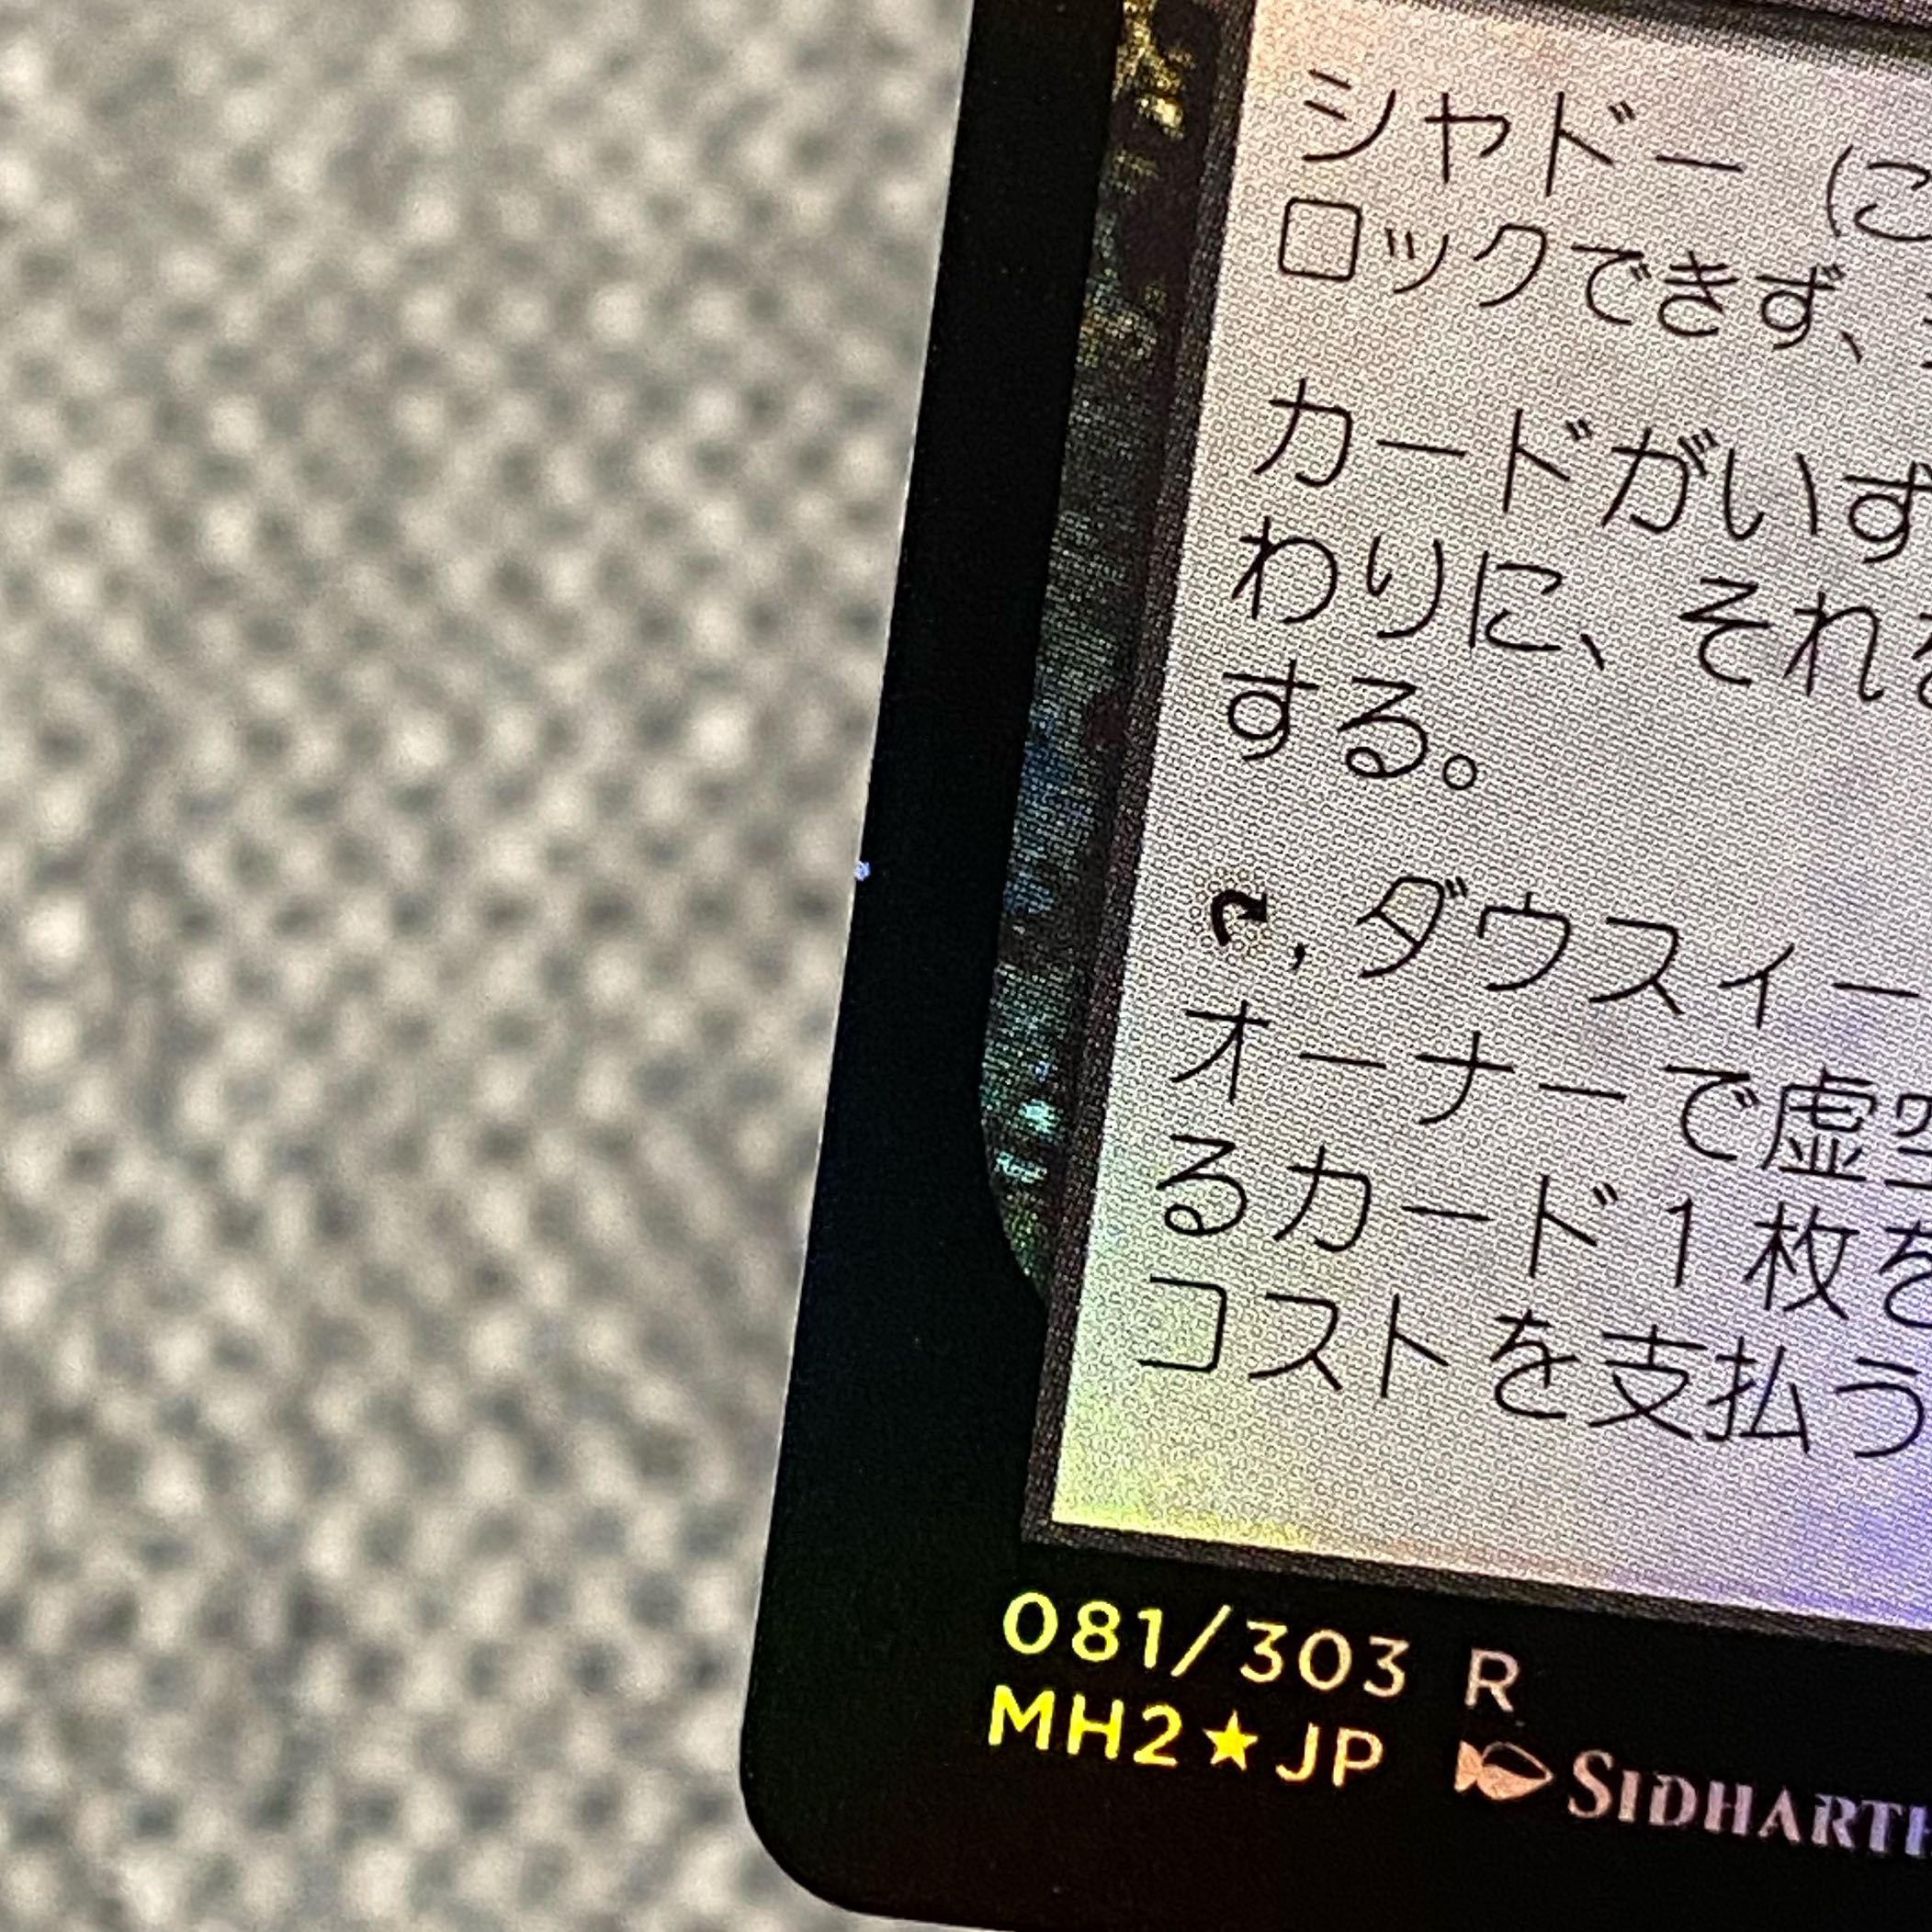 シャドー（こ
ロックできず、
カードがいす
わりに、それを
する。
, ダウスィー
オーナーで虚空
るカード１枚を
コストを支払う
081/303 R
MH2★JP SIDHARTH